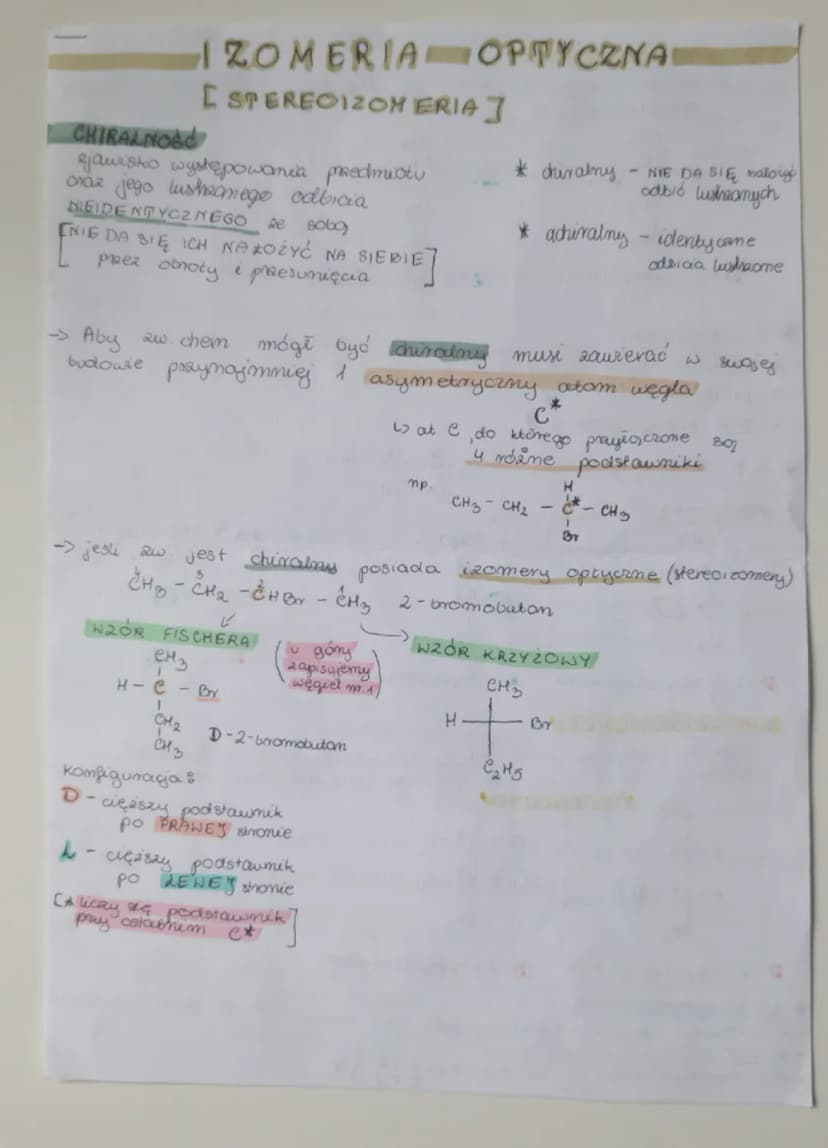 IZOMERIA OPTYCZNA
[STEREOIZOMERIA]
CHIRALNOŚĆ
zjawisko występowania przedmiotu
oraz jego lustrzanego odbicia
NIEIDENTYCZNEGO ze sobą
[NIE DA SIĘ ICH NAŁOŻYĆ NA SIEBIE
przez obroty i przesunięcia]
* chiralny - NIE DA SIĘ nałożyć
odbić lustrzanych
* achiralny - identyczne
odbicia lustrzane
-> Aby zw. chem mógł być chiralny musi zawierać w swojej
budowie przynajmniej 1 asymetryczny atom węgla
C*
↳ at. C, do którego przyłączone są
4 różne podstawniki
np.
H
CH3 - CH2 - C* - CH3
Br
-> jeśli zw. jest chiralny posiada izomery optyczne (stereoizomery)
4 3 2 1
CH3 - CH2 - CHBr - CH3 2-bromobutan
WZÓR FISCHERA
(u góry
zapisujemy
węgiel nr. 1)
WZÓR KRZYŻOWY
CH3
H - C - Br
CH2
CH3
D-2-bromobutan
CH3
H Br
C2H5
Konfiguracja:
D - cięższy podstawnik
po PRAWEJ stronie
L - cięższy podstawnik
po LEWEJ stronie
[* liczy się podstawnik
przy ostatnim C*]